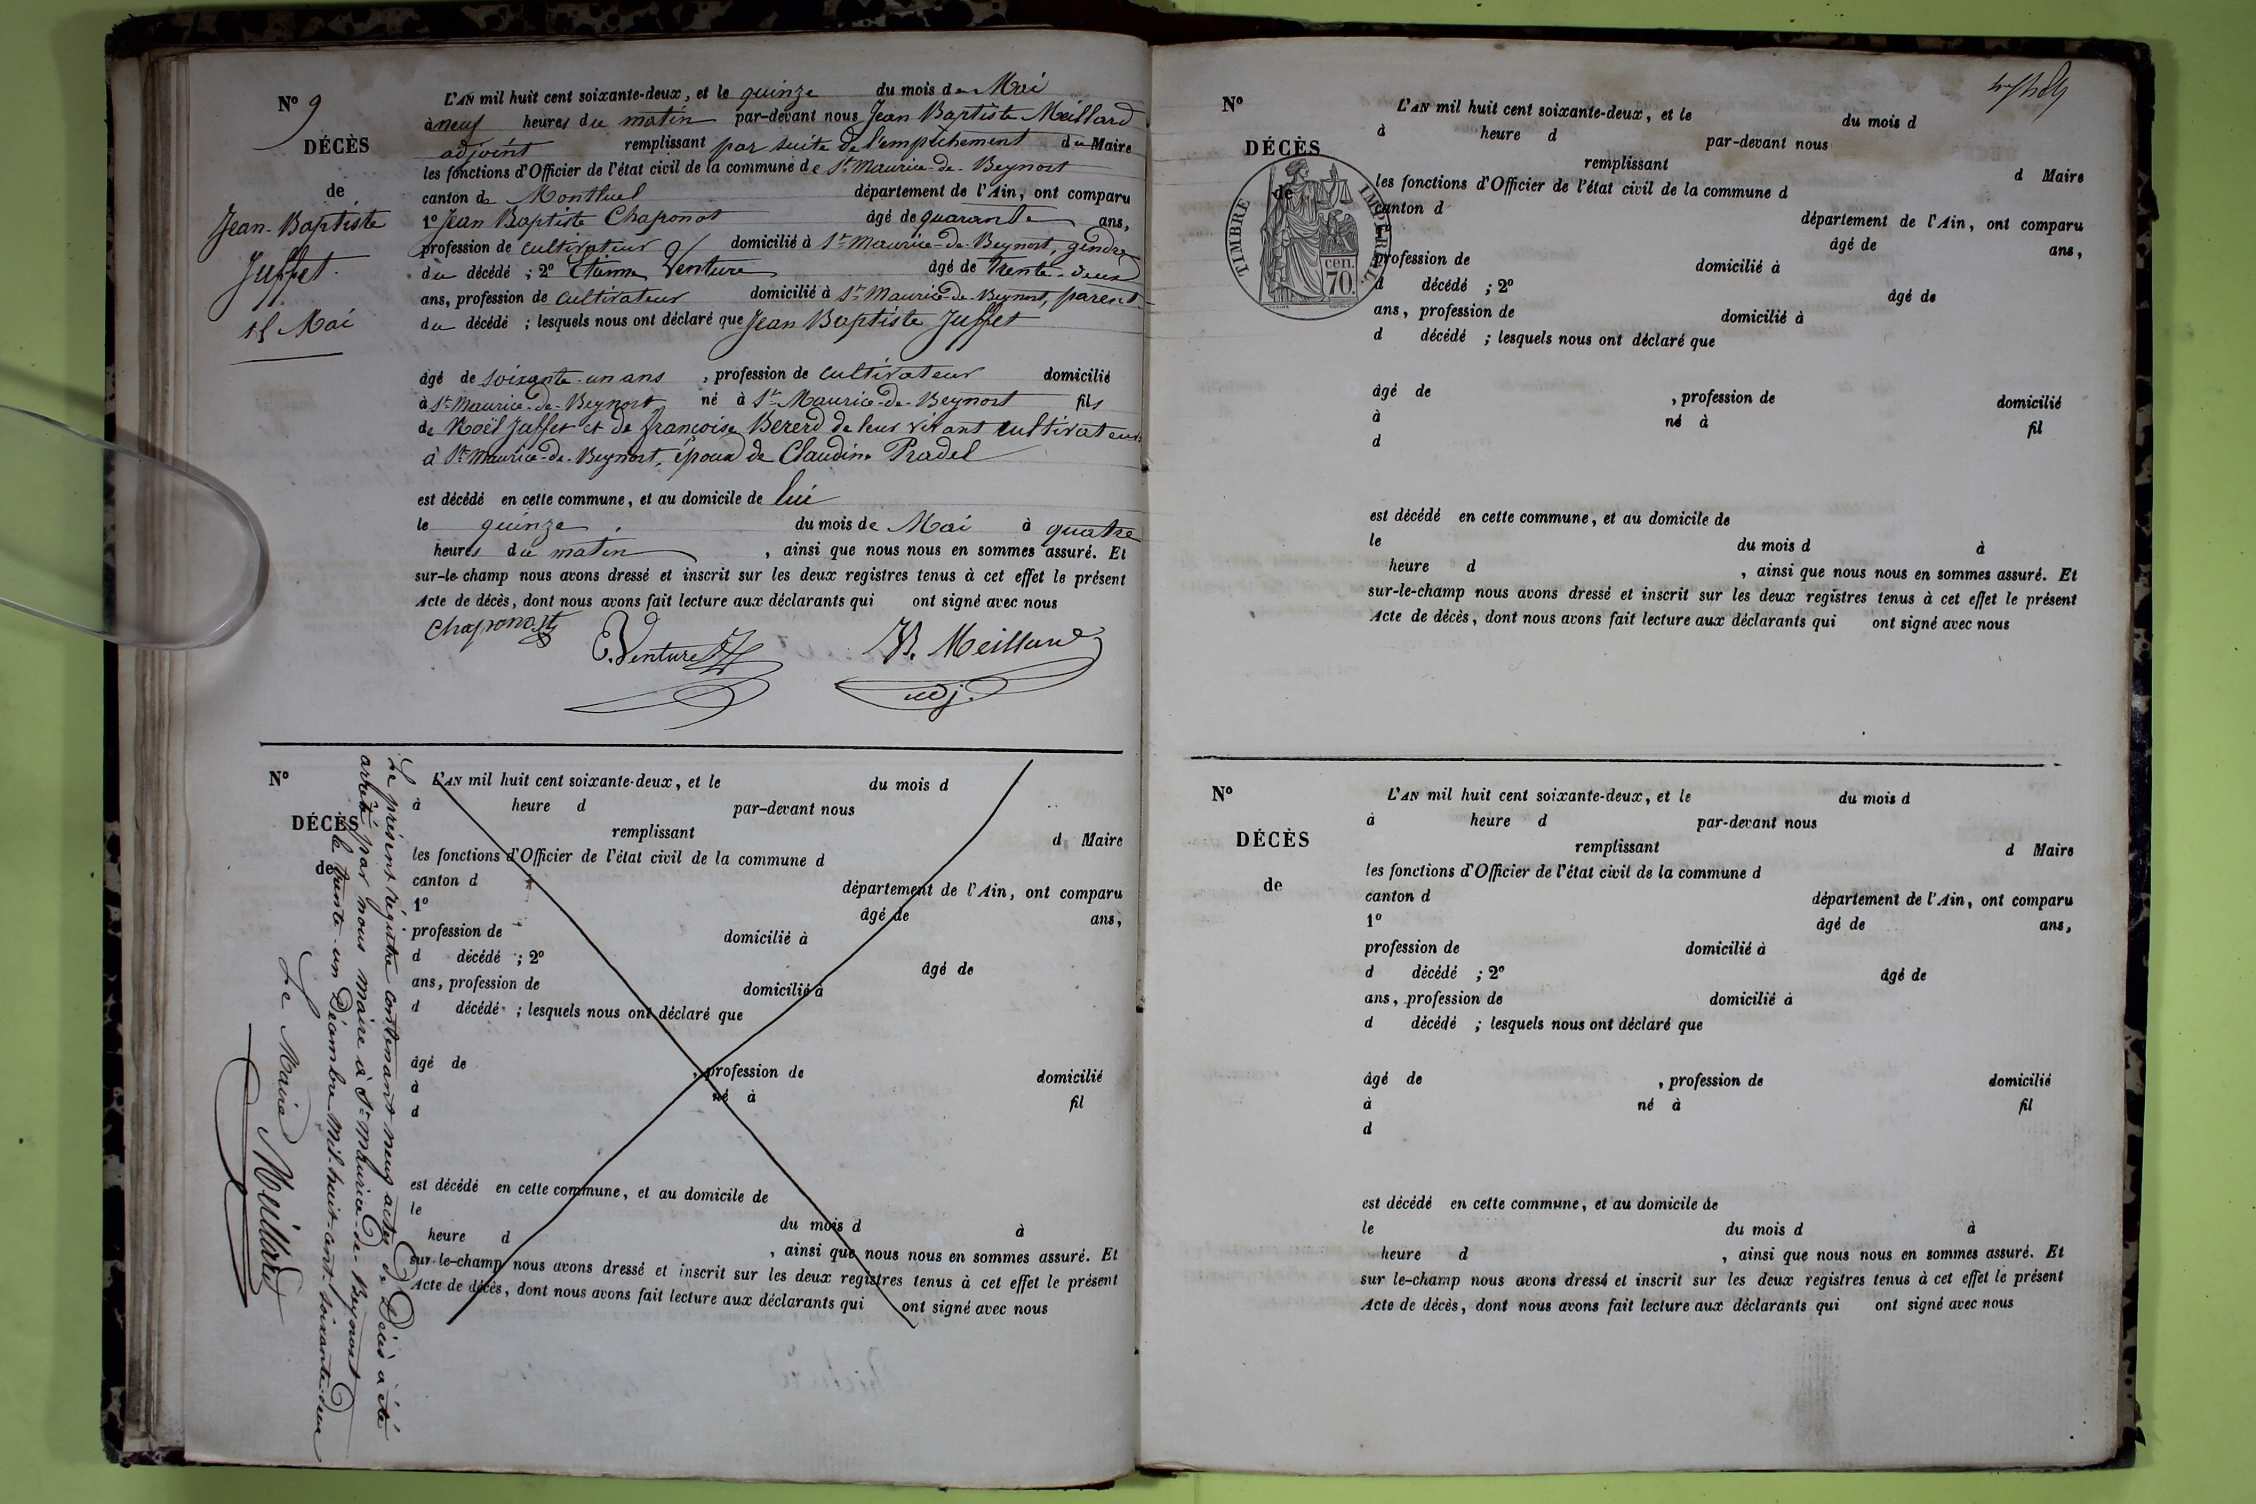 N° 9
DÉCÈS
de
Jean-Baptiste
Juffet
15 Mai
L'AN mil huit cent soixante-deux, et le quinze du mois de Mai
à neuf heures du matin par-devant nous Jean Baptiste Meillard
adjoint remplissant par suite de l'empêchement du Maire
les fonctions d'Officier de l'état civil de la commune de St Maurice-de-Beynost
canton de Montluel département de l'Ain, ont comparu
1° Jean Baptiste Chaponost âgé de quarante ans,
profession de cultivateur domicilié à St Maurice-de-Beynost, gendre
du décédé ; 2° Etienne Venture âgé de trente-deux
ans, profession de cultivateur domicilié à St Maurice-de-Beynost, parent
du décédé ; lesquels nous ont déclaré que Jean Baptiste Juffet
âgé de soixante-un ans , profession de cultivateur domicilié
à St Maurice-de-Beynost né à St Maurice-de-Beynost fils
de Noël Juffet et de françoise Bererd de leur vivant cultivateurs
à St Maurice-de-Beynost, époux de Claudine Pradel
est décédé en cette commune, et au domicile de lui
le quinze du mois de Mai à quatre
heures du matin , ainsi que nous nous en sommes assuré. Et
sur-le-champ nous avons dressé et inscrit sur les deux registres tenus à cet effet le présent
Acte de décès, dont nous avons fait lecture aux déclarants qui ont signé avec nous
Chaponost E. Venture Meillard
adj.
N°
DÉCÈS
de
L'AN mil huit cent soixante-deux, et le du mois d
à heure d par-devant nous
remplissant d Maire
les fonctions d'Officier de l'état civil de la commune d
canton d département de l'Ain, ont comparu
1° âgé de ans,
profession de domicilié à
d décédé ; 2° âgé de
ans, profession de domicilié à
d décédé ; lesquels nous ont déclaré que
âgé de , profession de domicilié
à né à fil
d
est décédé en cette commune, et au domicile de
le du mois d à
heure d , ainsi que nous nous en sommes assuré. Et
sur-le-champ nous avons dressé et inscrit sur les deux registres tenus à cet effet le présent
Acte de décès, dont nous avons fait lecture aux déclarants qui ont signé avec nous
Le présent régistre contenant neuf actes de Décès a été
arrêté par nous maire à St Maurice-de-Beynost
le trente-un Décembre mil-huit-cent-soixante-deux
Le Maire
Meillard
N°
DÉCÈS
de
TIMBRE IMPERIAL
70 cen.
L'AN mil huit cent soixante-deux, et le du mois d
à heure d par-devant nous
remplissant d Maire
les fonctions d'Officier de l'état civil de la commune d
canton d département de l'Ain, ont comparu
âgé de ans,
profession de domicilié à
d décédé ; 2° âgé de
ans, profession de domicilié à
d décédé ; lesquels nous ont déclaré que
âgé de , profession de domicilié
à né à fil
d
est décédé en cette commune, et au domicile de
le du mois d à
heure d , ainsi que nous nous en sommes assuré. Et
sur-le-champ nous avons dressé et inscrit sur les deux registres tenus à cet effet le présent
Acte de décès, dont nous avons fait lecture aux déclarants qui ont signé avec nous
N°
DÉCÈS
de
L'AN mil huit cent soixante-deux, et le du mois d
à heure d par-devant nous
remplissant d Maire
les fonctions d'Officier de l'état civil de la commune d
canton d département de l'Ain, ont comparu
1° âgé de ans,
profession de domicilié à
d décédé ; 2° âgé de
ans, profession de domicilié à
d décédé ; lesquels nous ont déclaré que
âgé de , profession de domicilié
à né à fil
d
est décédé en cette commune, et au domicile de
le du mois d à
heure d , ainsi que nous nous en sommes assuré. Et
sur le-champ nous avons dressé et inscrit sur les deux registres tenus à cet effet le présent
Acte de décès, dont nous avons fait lecture aux déclarants qui ont signé avec nous